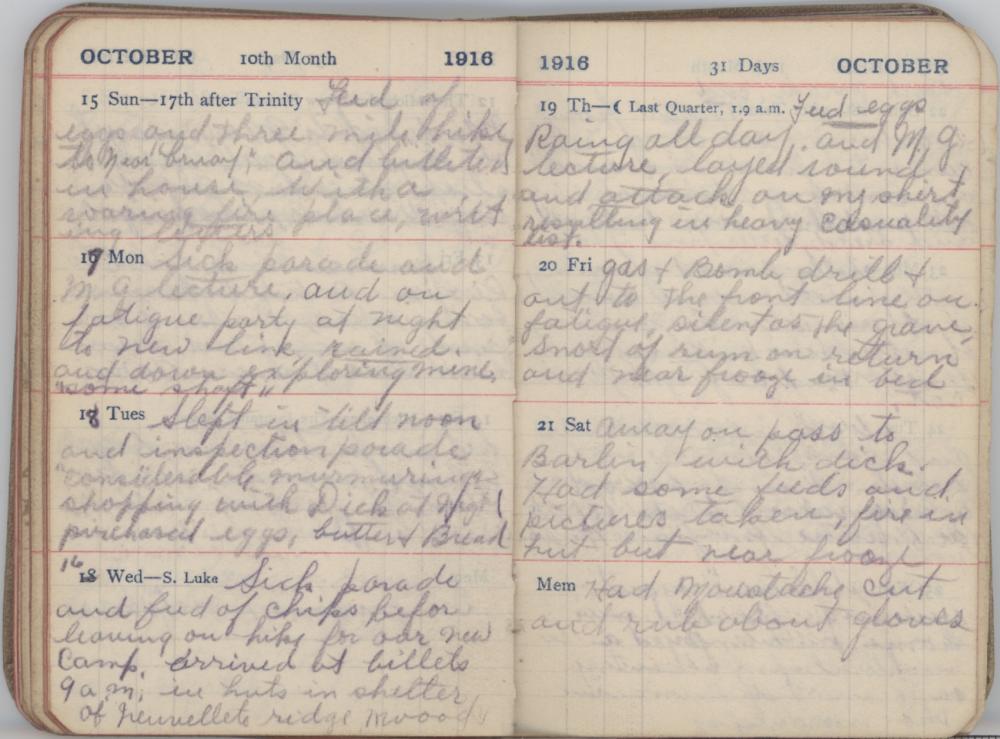 OCTOBER 10th Month 1916
15 Sun—17th after Trinity Feed of
eggs and three mile hike
to and billeted
in house, with a
roaring fire place, writ
ing letters
17 Mon Sick parade and
M G lecture, and on
fatigue party at night
to new line, rained.
and down exploring mine,
"some shaft"
18 Tues Slept in till noon
and inspection parade
"considerable murmurings
shopping with Dick at night
purchased eggs, butter & Bread
16
18 Wed—S. Luke Sick parade
and feed of chips befor
leaving on hike for our new
Camp. arrived at billets
9 a.m. in huts in shelter
of ridge
1916 31 Days OCTOBER
19 Th—☾ Last Quarter, 1.9 a.m. Feed eggs
Raing all day, and M, G
lecture, layed round,
and attack, on my shert
resulting in heavy casuality
list.
20 Fri gas & Bomb drill &
out to the front line on
fatigue, silent as the grave,
Snort of rum on return
and near frooze in bed
21 Sat away on pass to
Barlin, with dick.
Had some feeds and
pictures taken, fire in
hut but near frooze
Mem Had Moustache Cut
and rub about gloves